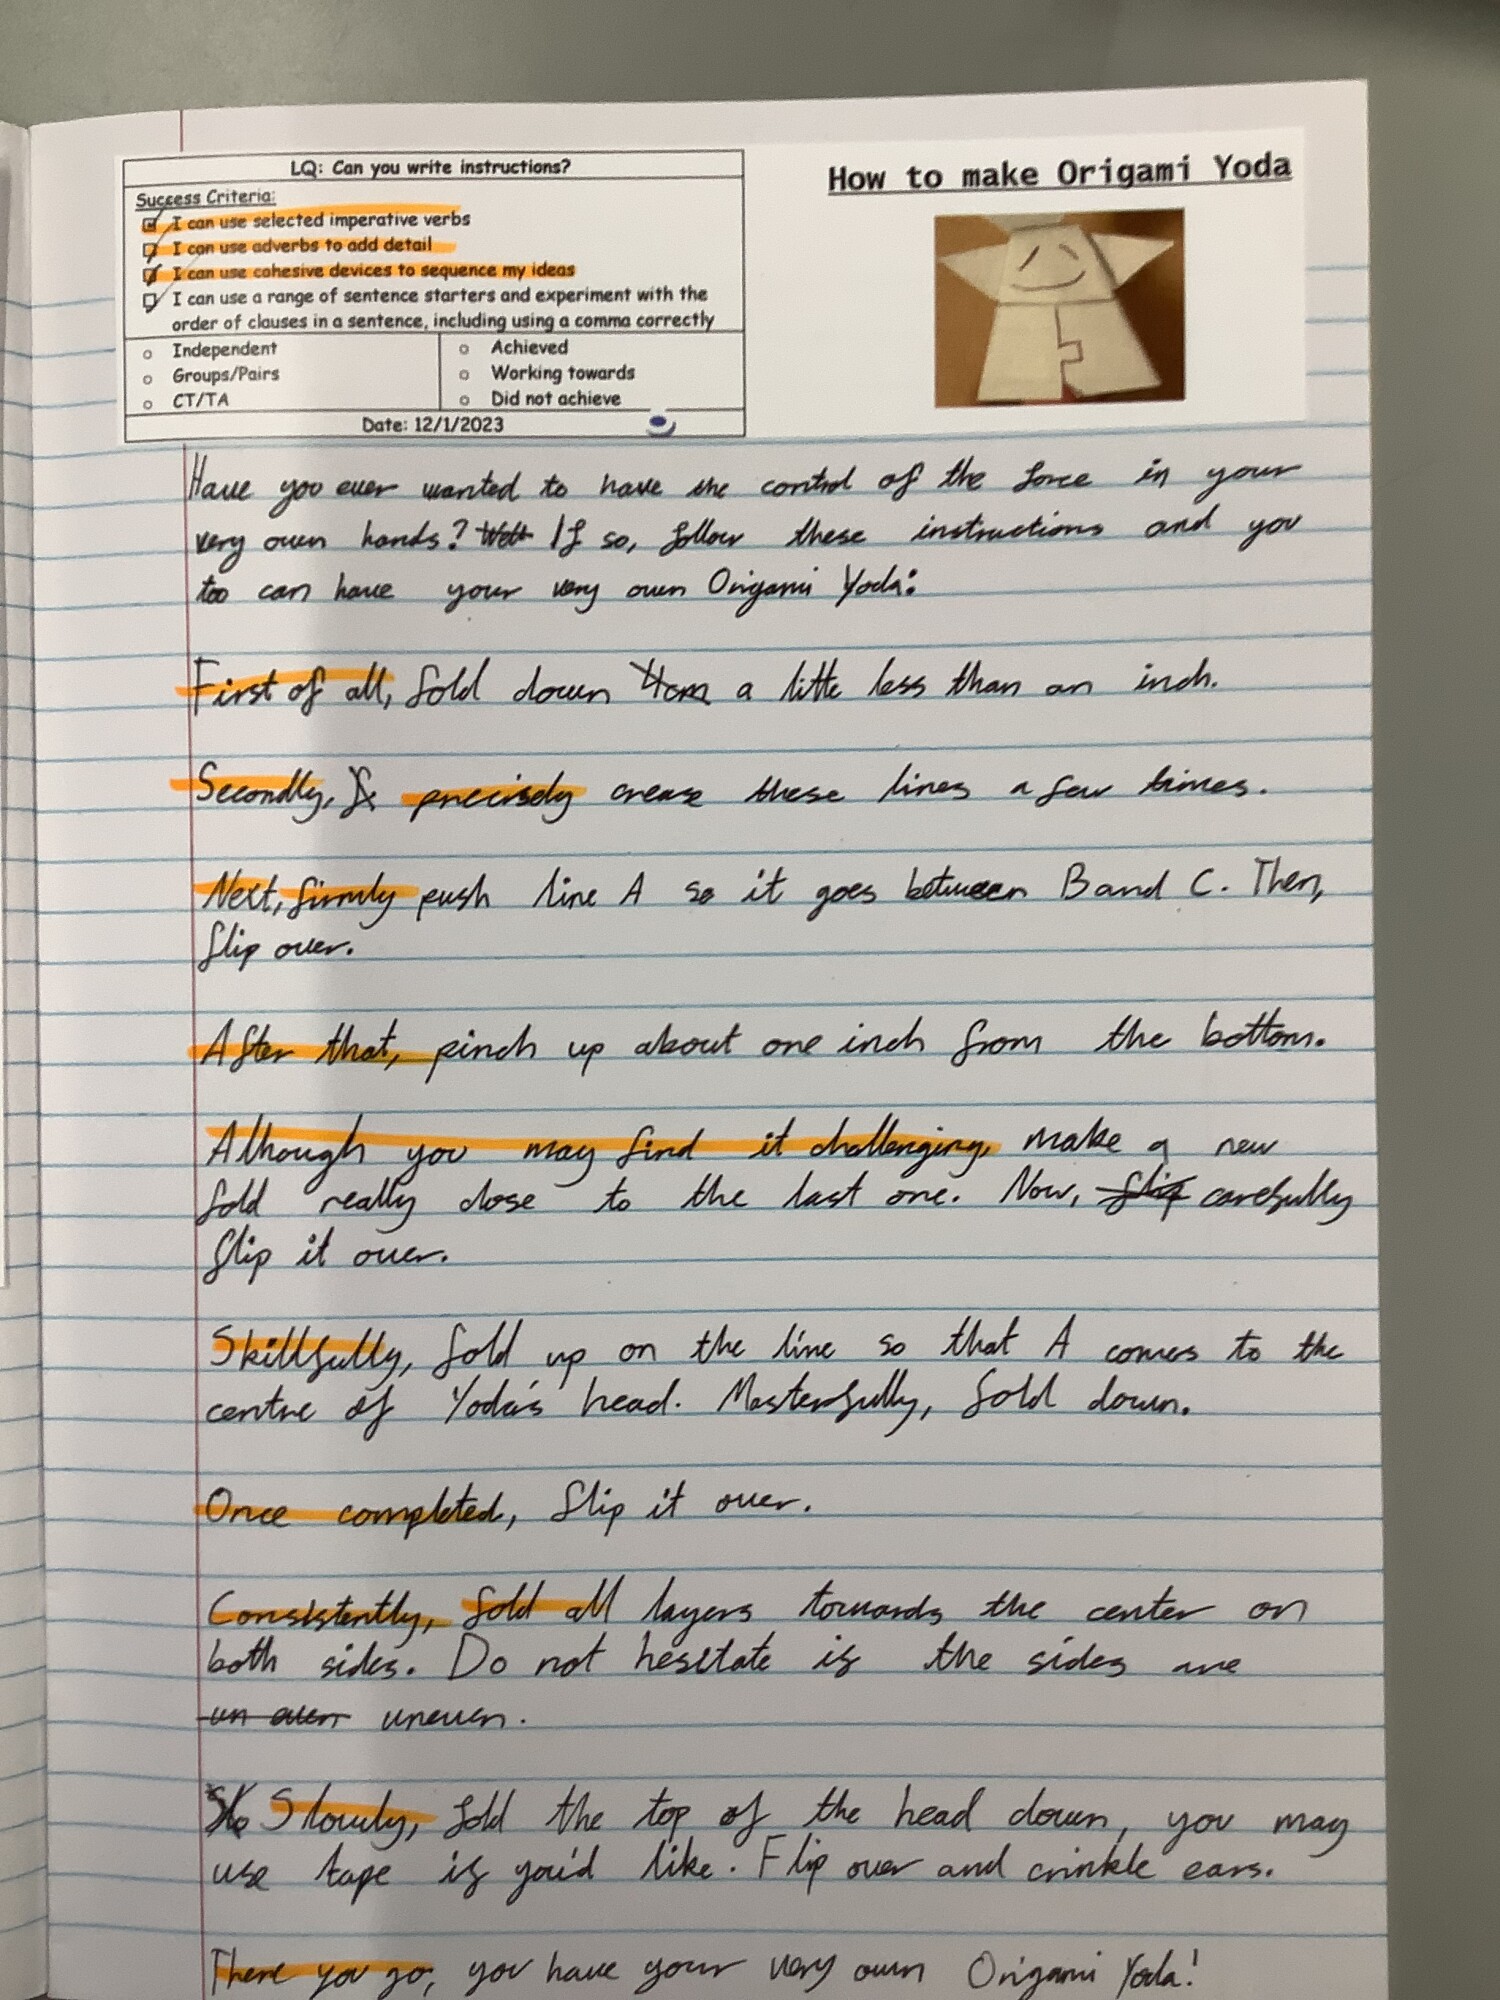 LQ: Can you write instructions?
Success Criteria:
I can use selected imperative verbs
I can use adverbs to add detail
I can use cohesive devices to sequence my ideas
I can use a range of sentence starters and experiment with the
order of clauses in a sentence, including using a comma correctly
Independent
Groups/Pairs
CT/TA
Achieved
Working towards
Did not achieve
Date: 12/1/2023
How to make Origami Yoda
Have you ever wanted to have the control of the force in your
very own hands? Well If so, follow these instructions and you
too can have your very own Origami Yoda:
First of all, fold down 4cm a little less than an inch.
Secondly, precisely crease these lines a few times.
Next, firmly push line A so it goes between B and C. Then,
flip over.
After that, pinch up about one inch from the bottom.
Alhough you may find it challenging, make a new
fold really close to the last one. Now, flip carefully
flip it over.
Skillfully, fold up on the line so that A comes to the
centre of Yoda's head. Masterfully, fold down.
Once completed, flip it over.
Consistently, fold all layers towards the center on
both sides. Do not hesitate if the sides are
un even uneven.
Slowly, fold the top of the head down, you may
use tape if you'd like. Flip over and crinkle ears.
There you go, you have your very own Origami Yoda!